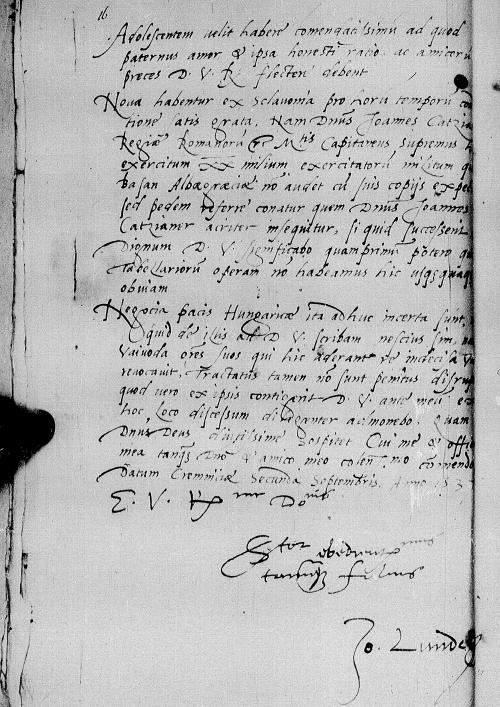 16
Adolescentem velit habere comendatissimū ad quod
paternus amor & ipsa honesti ratio, ac amicorū
preces D. V. R. flectere debent
Nova habentur ex Sclavonia pro horū temporū
tione satis grata, Nam Dnus Joannes Catzia
Regiæ Romanorū &c Mtis Capitaneus supremus
exercitum XX milium exercitatorū militum
Basan Albægræciæ nō audet cū suis copijs expe
sed pedem referre conatur quem Dnus Joannes
Catzianer acriter insequitur, si quid successerit
Dignum D. V. significabo quamprimū potero
Tabellariorū operam nō habeamus hic usqequaq
obviam
Negocia pacis Hungaricæ ita adhuc incerta sunt,
quid de illis ad D. V. scribam nescius sim,
Vaivoda ores suos qui hic aderant re indecisa
revocavit, Tractatus tamen nō sunt penitus disru
quod vero ex ipsis contigerit D. V. ante meū ex
hoc loco discessum diligenter admonebo. Quam
Dnus Deus diutissime sospitet Cui me & offi
mea tanq Dno & amico meo colen mo comendo
Datum Cremniciæ Secunda Septembris, Anno 153
E. V. R Do
obedient
tanq filius
Jo. Lunde